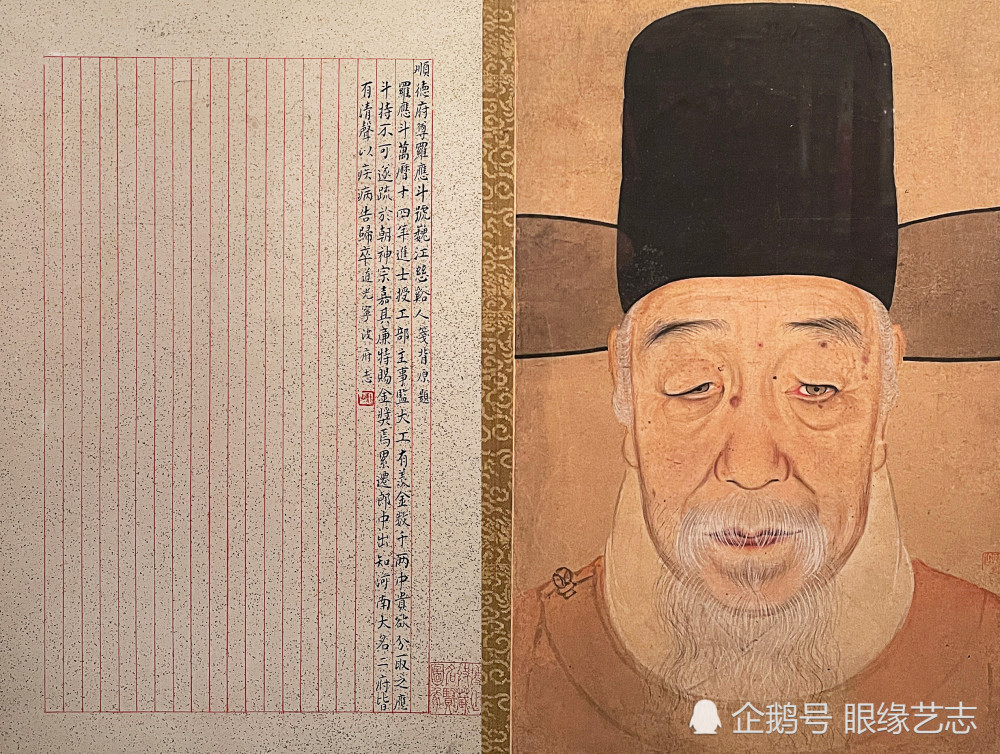 順德府尊羅應斗號巍江慈谿人箋背原題
羅應斗萬曆十四年進士授工部主事監大工有羨金數千兩中貴欲分取之應
斗持不可遂疏於朝神宗嘉其廉特賜金獎焉累遷郎中出知河南大名二府皆
有清聲以疾病告歸卒道光寧波府志
企鹅号 眼缘艺志